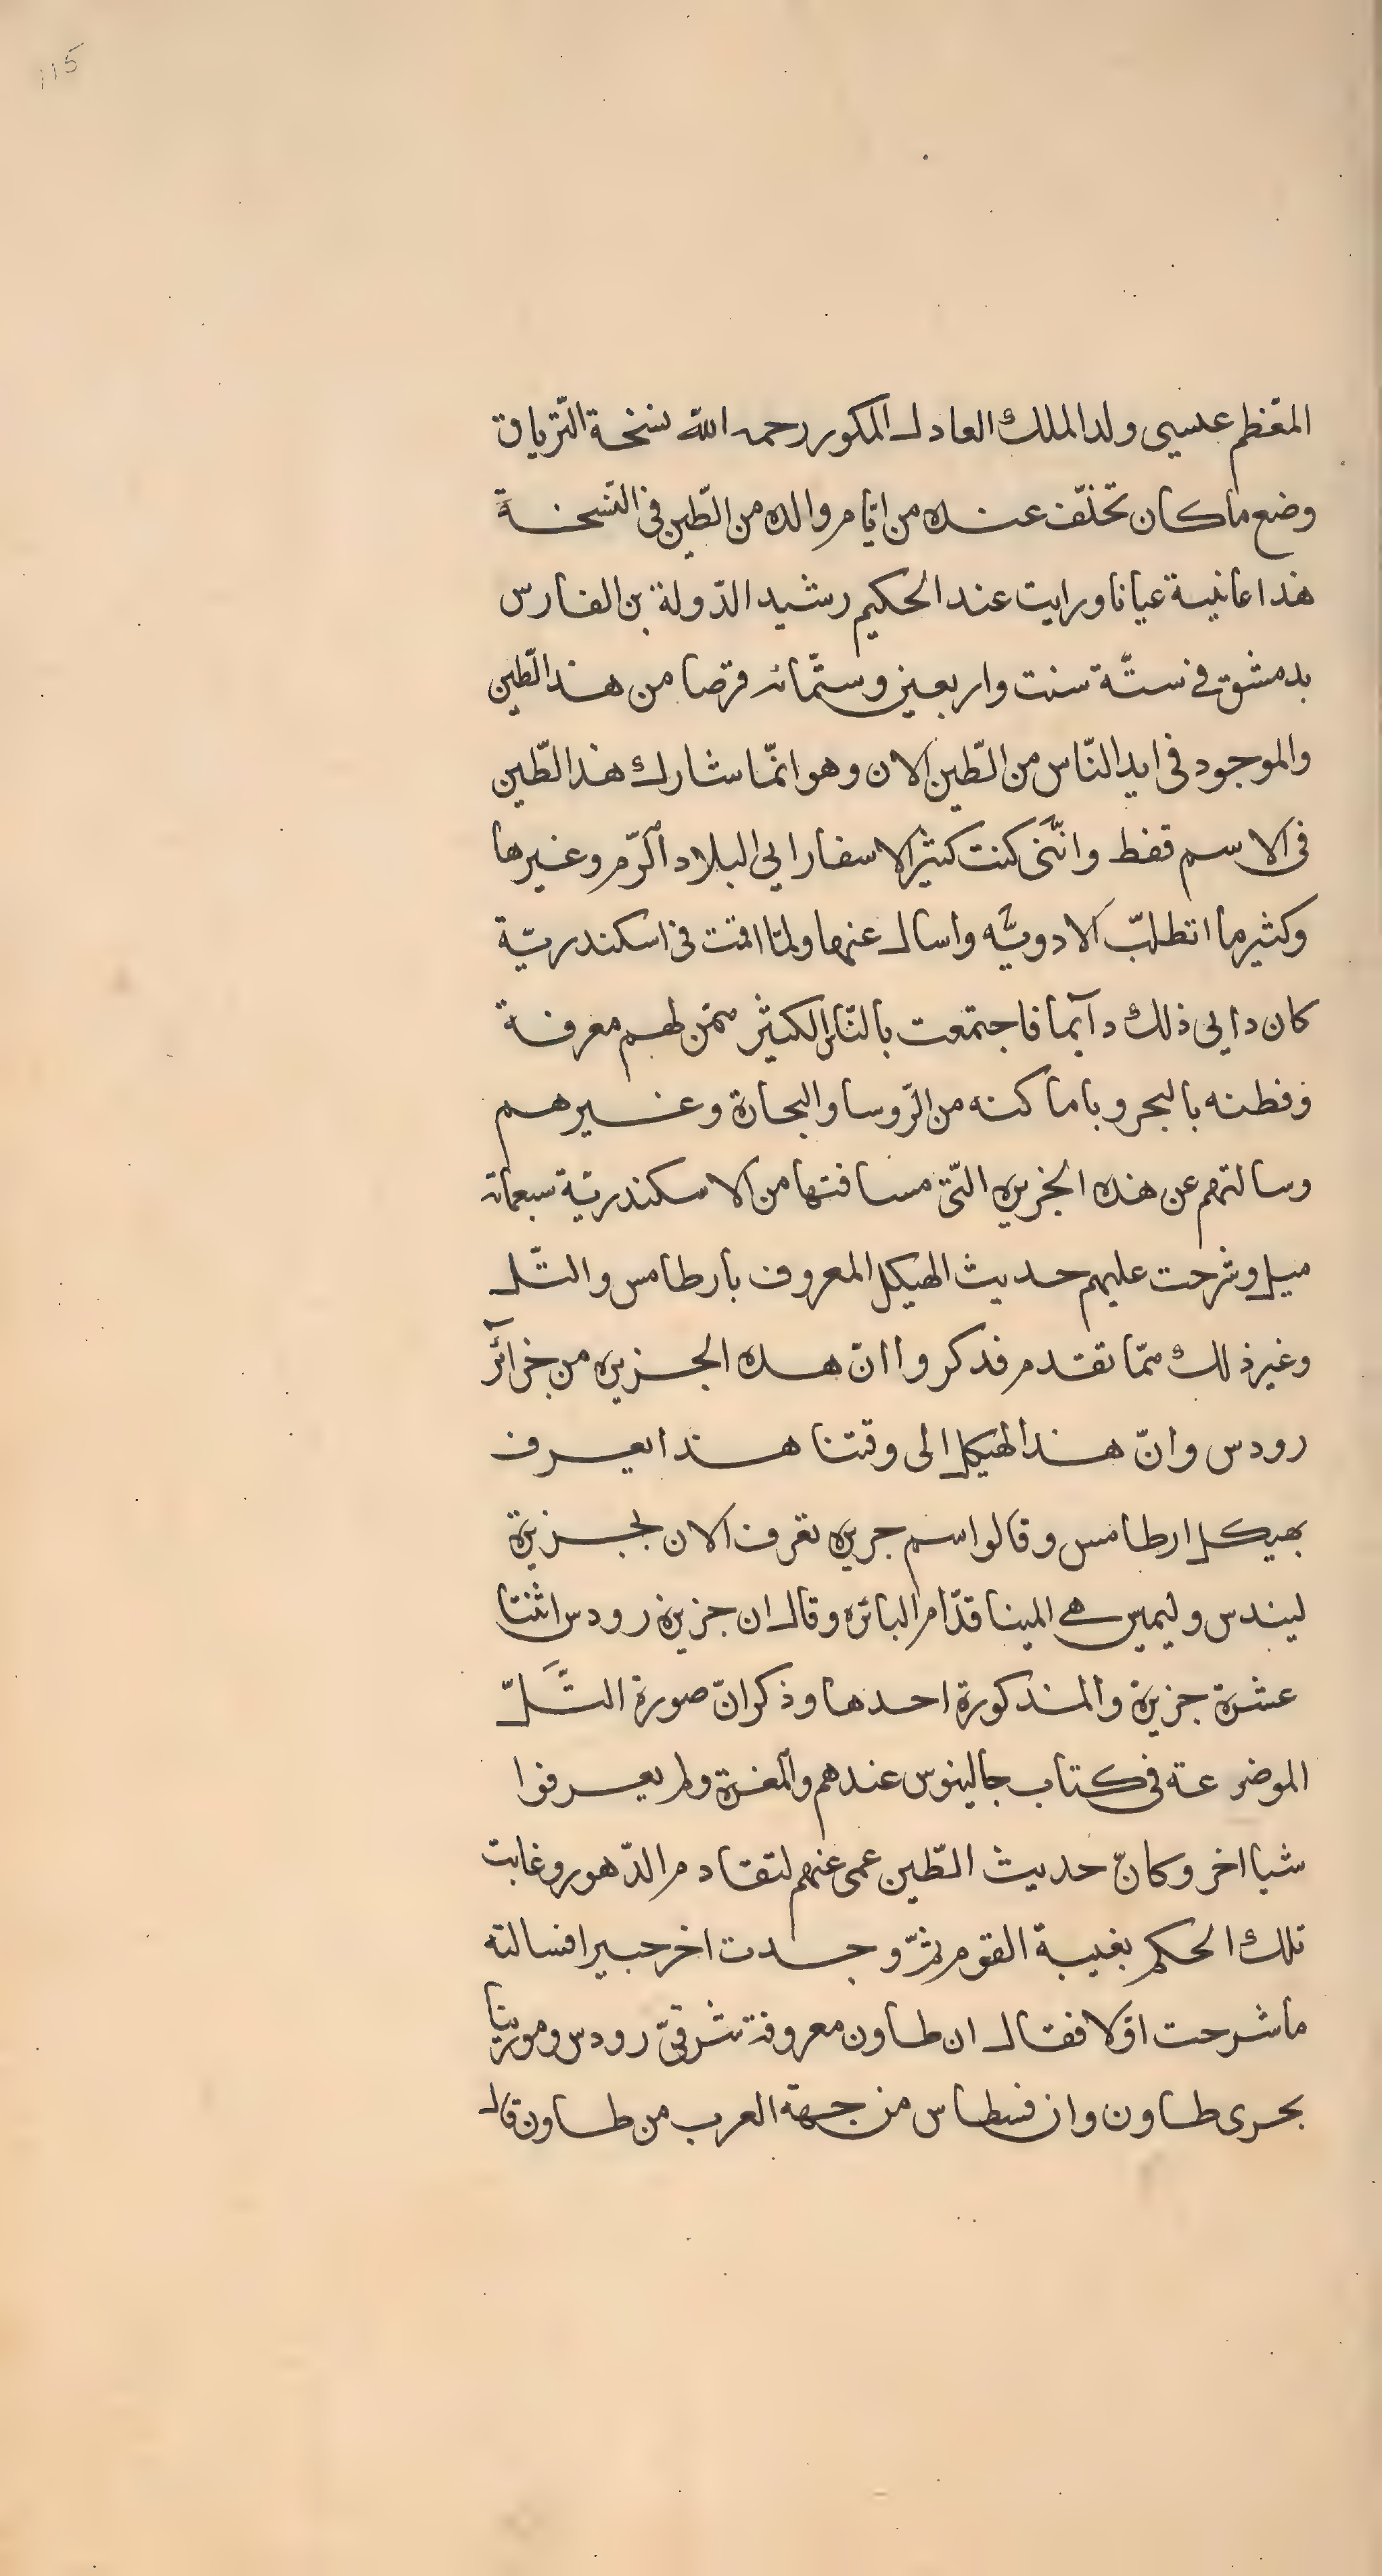 115
المغظم عىسى ولد الملك العادل المكور رحمه الله نسخة الترياق
وضع ما كان تخلف عنده من ايام والده من الطين فى النسخة
هذا عانية عيانا ورايت عند الحكيم رشيد الدولة بن الفارس
بدمشق فى ستة سنت واربعين وستمائة قرصا من هذا الطين
والموجود فى ايد الناس من الطين الان وهو انما شارك هذا الطين
فى الاسم قفط واننى كنت كثير الاسفار الي البلاد الروم وغيرها
وكثير ما اتطلب الادويه واسال عنها ولما اقمت فى اسكندرية
كان دابى ذلك دآيما فاجتمعت بالناس الكثير ممن لهم معرفة
وفطنه بالبحر وباماكنه من الروسا والبحارة وغيرهم
وسالتهم عن هذه الجزيره التى مسافتها من الاسكندرية سبعمائة
ميل وشرحت عليهم حديث الهيكل المعروف بارطامس والتل
وغير ذلك مما تقدم فدكروا ان هده الجزيره من جزآئر
رودس وان هذا الهيكل الى وقتنا هذا يعرف
بهيكل ارطامس وقالوا اسم جريره تعرف الان بجزيرة
ليندس وليميس هى المينا قدام البائره وقال ان جزيرة رودس اثنتا
عشرة جزيرة والمذكورة احدها وذكر ان صورة التل
الموضوعة فى كتاب جالينوس عندهم والمغرة ولم يعرفوا
شيا اخر وكان حديث الطين عمى عنهم لتقادم الدهور وغابت
تلك الحكم بغيبة القوم ثم وجدت اخر خبيرا فسالته
ما شرحت اولا فقال ان طاون معروفة شرقى رودس ومورينا
بحرى طاون وان فسطاس من جهة العرب من طاون قال